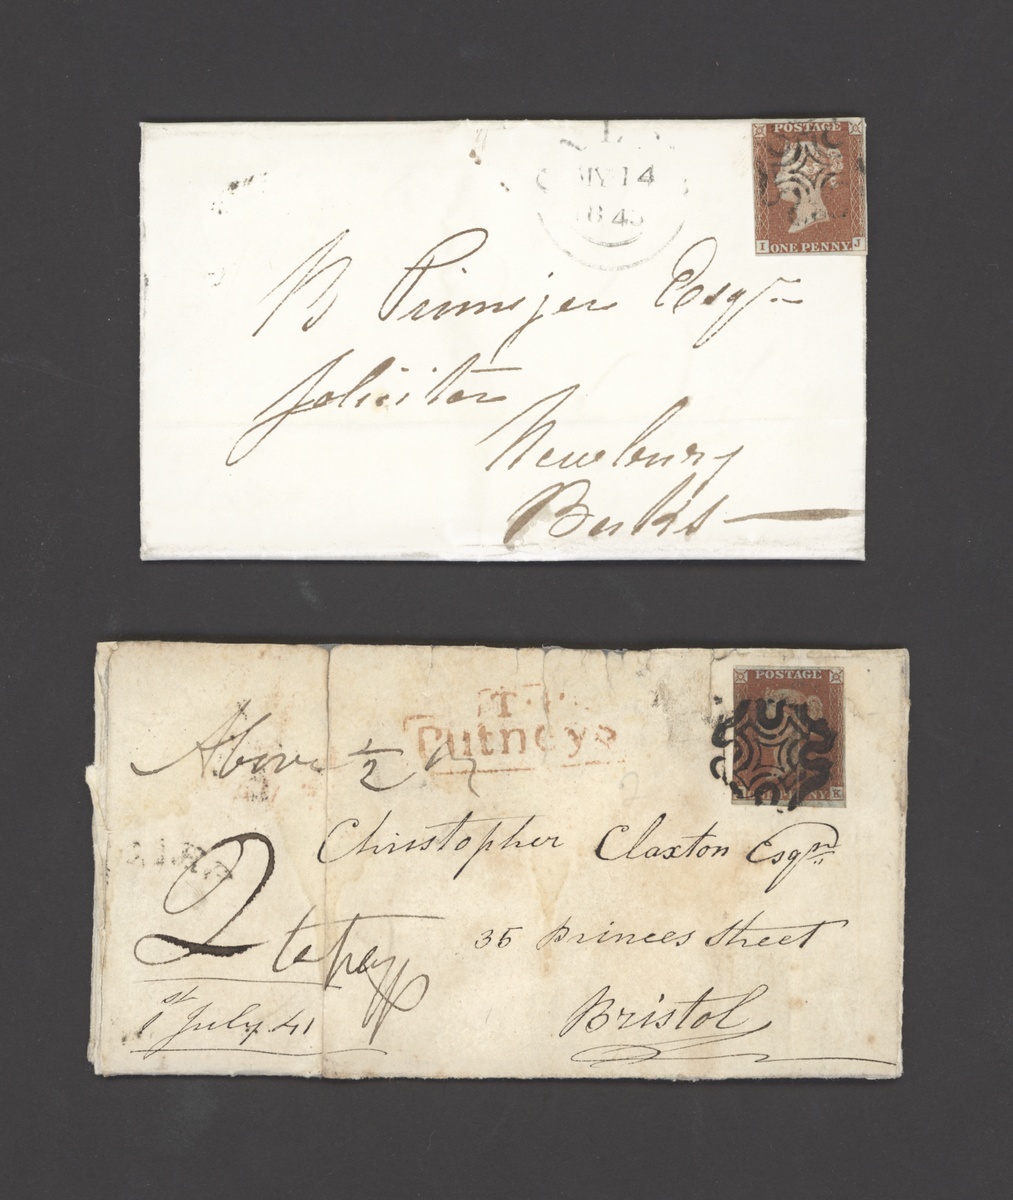 MY 14
1843
POSTAGE
I ONE PENNY. J
B Esqr.
Solicitor
Newbury
Berks
POSTAGE
K
T.
Putney
Above ½ oz
Christopher Claxton Esqre.
2
35 Princes Street
to pay
Bristol
1st July 41